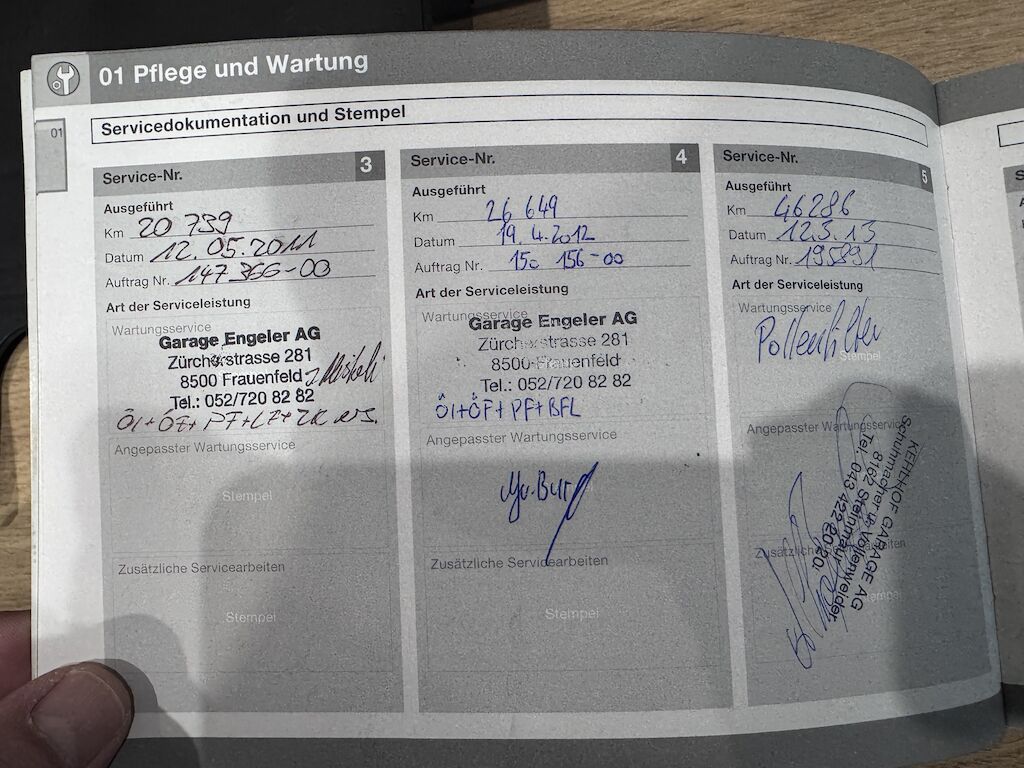 01 Pflege und Wartung
01
Servicedokumentation und Stempel
Service-Nr. 3
Ausgeführt
Km 20 739
Datum 12.05.2011
Auftrag Nr. 147 366-00
Art der Serviceleistung
Wartungsservice
Garage Engeler AG
Zürcherstrasse 281
8500 Frauenfeld
Tel.: 052/720 82 82
Öl+ÖF+PF+LF+ZK
Angepasster Wartungsservice
Stempel
Zusätzliche Servicearbeiten
Stempel
Service-Nr. 4
Ausgeführt
Km 26 649
Datum 19.4.2012
Auftrag Nr. 150 156-00
Art der Serviceleistung
Wartungsservice
Garage Engeler AG
Zürcherstrasse 281
8500 Frauenfeld
Stempel
Tel.: 052/720 82 82
Öl+ÖF+PF+BFL
Angepasster Wartungsservice
Zusätzliche Servicearbeiten
Stempel
Service-Nr. 5
Ausgeführt
Km 46286
Datum 12.3.13
Auftrag Nr. 195891
Art der Serviceleistung
Wartungsservice
Pollenfilter
Stempel
Angepasster Wartungsservice
KEHLHOF GARAGE AG
Schuhmacher u. Vollenweider
8162 Steinmaur
Tel. 043 422
Zusätzliche Servicearbeiten
Stempel
S